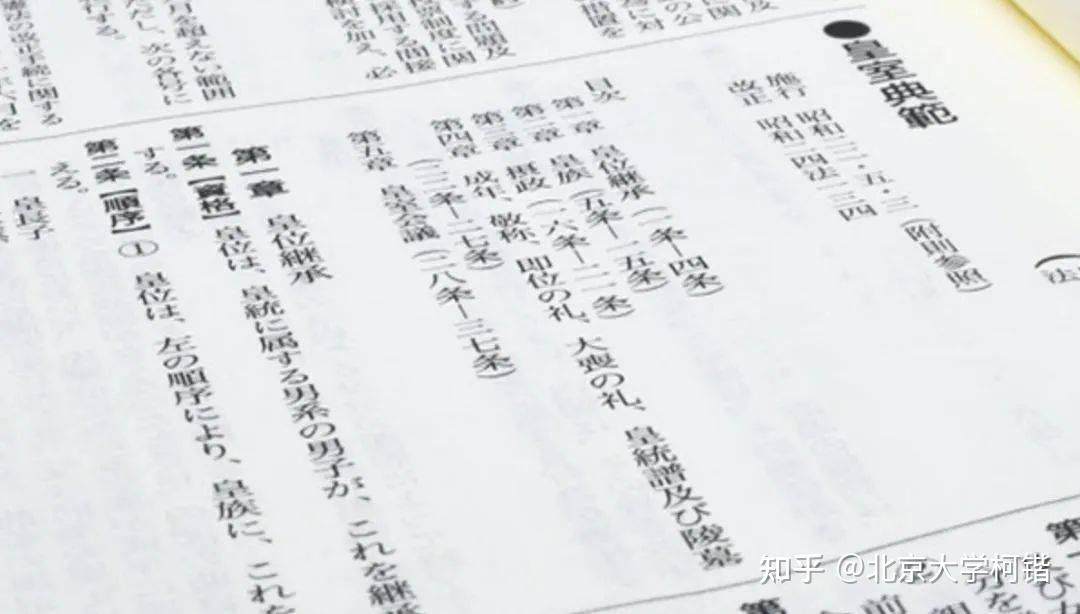 関及
の公
に対
措置を
する問題及
制度に関
採用する間接
を加え、必
月を超えない範囲
ただし、次の各号に
行する。
の改正手続に関する
●皇室典範
施行 昭和二二・五・三(附則参照)
改正 昭和二四法一三四
目次
第一章 皇位継承(一条―四条)
第二章 皇族(五条―一五条)
第三章 摂政(一六条―二一条)
第四章 成年、敬称、即位の礼、大喪の礼、皇統譜及び陵墓
(二二条―二七条)
第五章 皇室会議(二八条―三七条)
第一章 皇位継承
第一条【資格】 皇位は、皇統に属する男系の男子が、これを継承
する。
第二条【順序】① 皇位は、左の順序により、皇族に、これを
える。
一 皇長子
(法
知乎 @北京大学柯锴